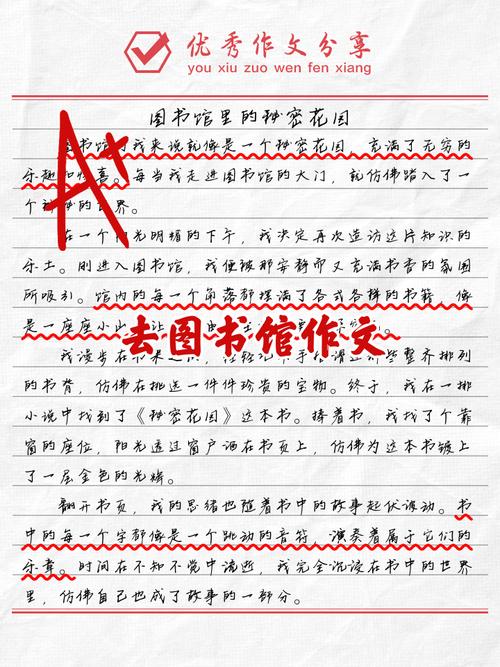 优秀作文分享
you xiu zuo wen fen xiang
图书馆里的秘密花园
A+
书馆 我来说就像是一个秘密花园，充满了无穷的
乐趣和惊喜。每当我走进图书馆的大门，就仿佛踏入了一
个 的 界。
在一个 光明媚的下午，我决定再次造访这片知识的
乐土。刚进入图书馆，我便被那安静而又充满书香的氛围
所吸引。馆内的每一个角落都摆满了各式各样的书籍，像
是一座座小山 让
去图书馆作文
我漫步在书架之 整齐排列
的书脊，仿佛在挑选一件件珍贵的宝物。终于，我在一排
小说中找到了《秘密花园》这本书。捧着书，我找了个靠
窗的座位，阳光透过窗户洒在书页上，仿佛为这本书镀上
了一层金色的光辉。
翻开书页，我的思绪也随着书中的故事起伏波动。书
中的每一个字都像是一个跳动的音符，演奏着属于它们的
乐章。时间在不知不觉中流逝，我完全沉浸在书中的世界
里，仿佛自己也成了故事的一部分。